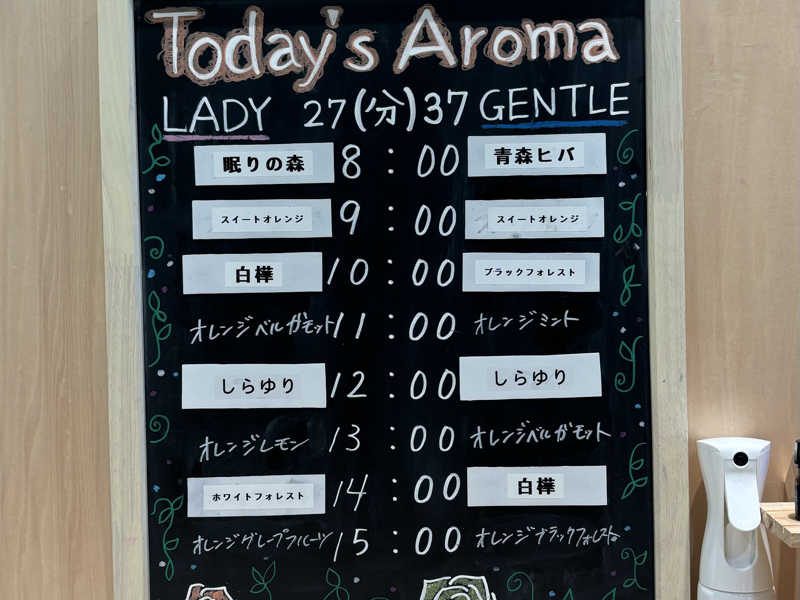 Today's Aroma
LADY 27(分)37 GENTLE
眠りの森 8:00 青森ヒバ
スイートオレンジ 9:00 スイートオレンジ
白樺 10:00 ブラックフォレスト
オレンジベルガモット 11:00 オレンジミント
しらゆり 12:00 しらゆり
オレンジレモン 13:00 オレンジベルガモット
ホワイトフォレスト 14:00 白樺
オレンジグレープフルーツ 15:00 オレンジブラックフォレスト